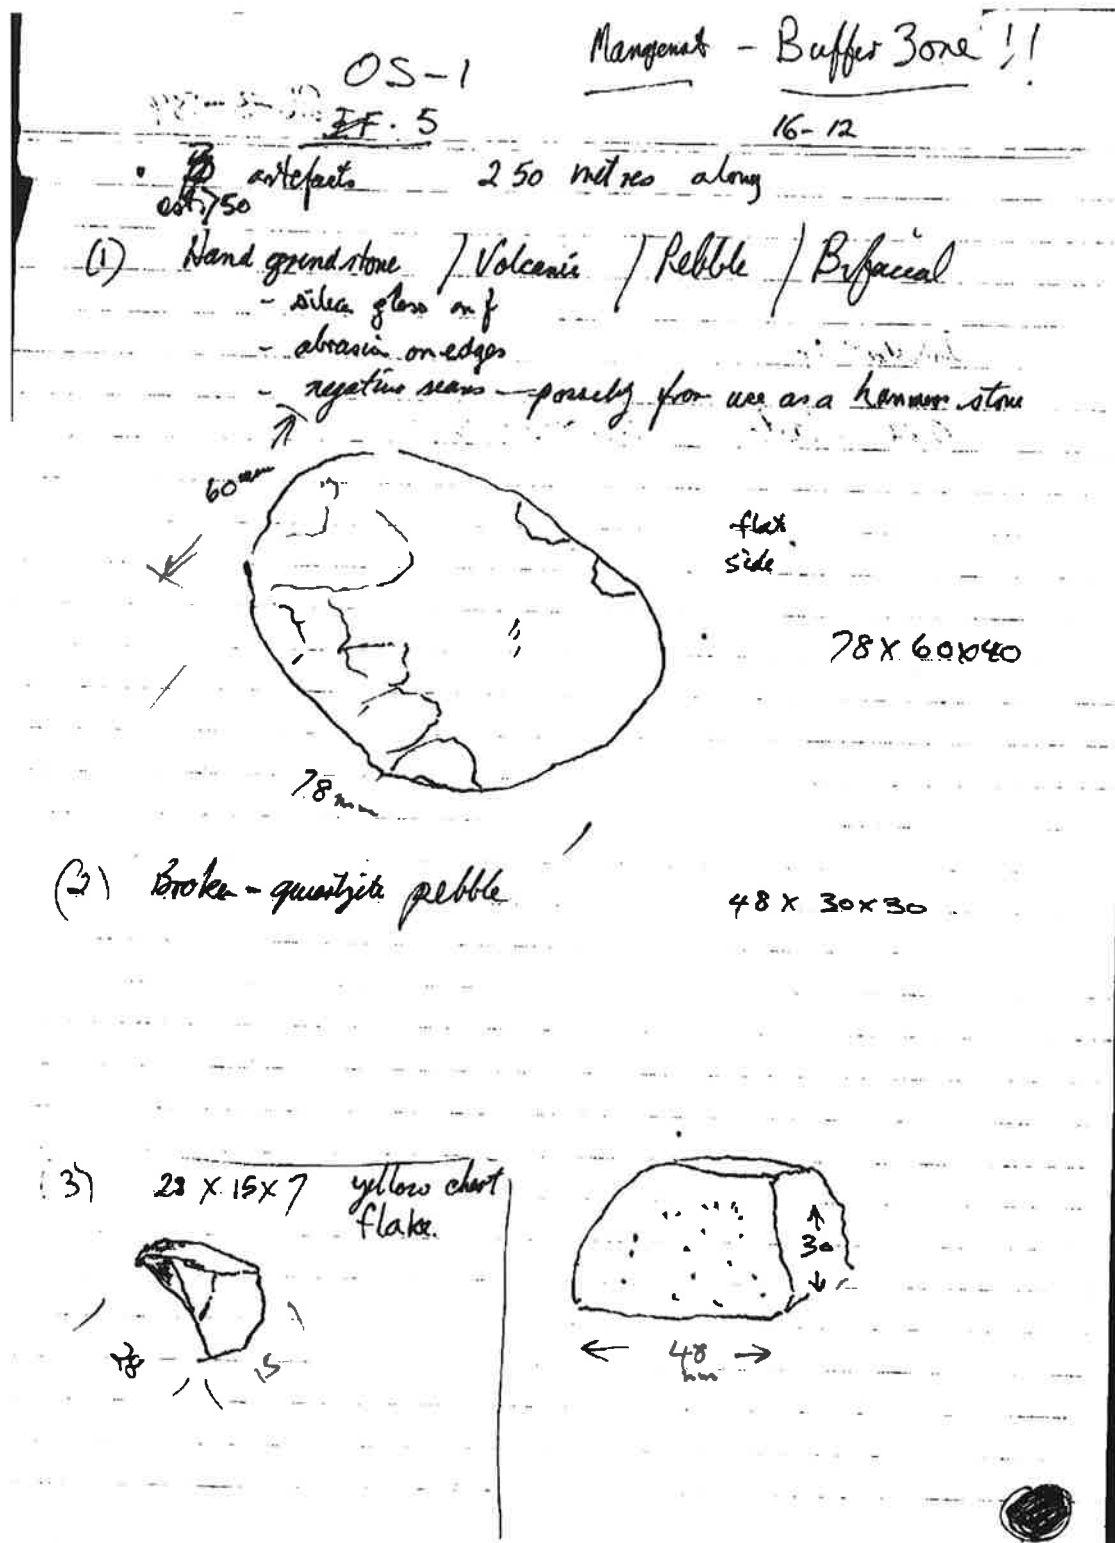 OS-1
Mangemat - Buffer Zone !!
IF. 5
16-12
artefacts 250 metres along
est. 750
(1) Hand grindstone / Volcanic / Pebble / Bifacial
- silica gloss on f
- abrasion on edges
- negative scars - possibly from use as a hammer stone
60mm
flat
side
78 X 60X40
78mm
(2) Broken - quartzite pebble 48 X 30X30
3) 28 X 15X7 yellow chert
flake.
30
28
15
48
mm